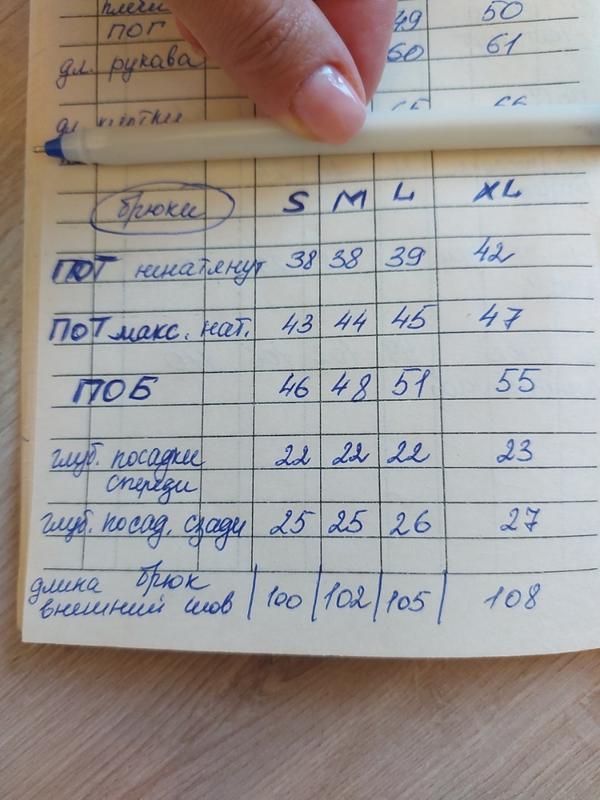 плечи 50
ПОГ 49
дл. рукава 60 61
дл.
брюки S M L XL
ПОТ ненатянут 38 38 39 42
ПОТ макс. нат. 43 44 45 47
ПОБ 46 48 51 55
глуб. посадки 22 22 22 23
спереди
глуб. посад. сзади 25 25 26 27
длина брюк
внешний шов 100 102 105 108